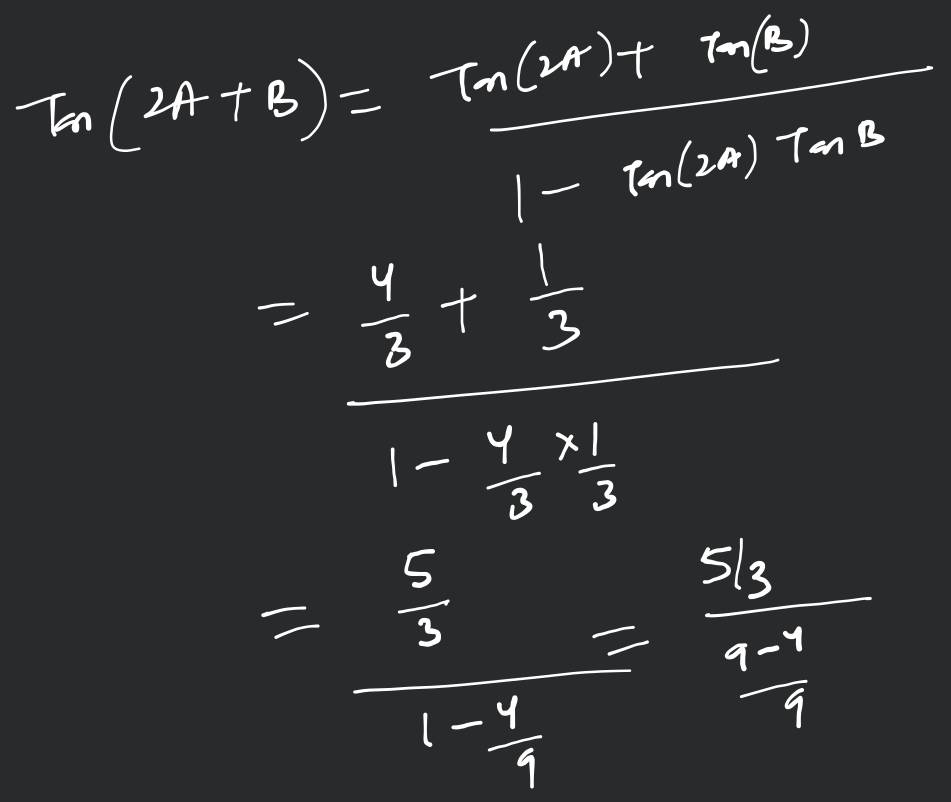 Tan(2A+B) = Tan(2A)+ Tan(B)
1 - Tan(2A) Tan B
= 4/3 + 1/3
1 - 4/3 × 1/3
= 5/3 = 5/3
1 - 4/9 9-4/9